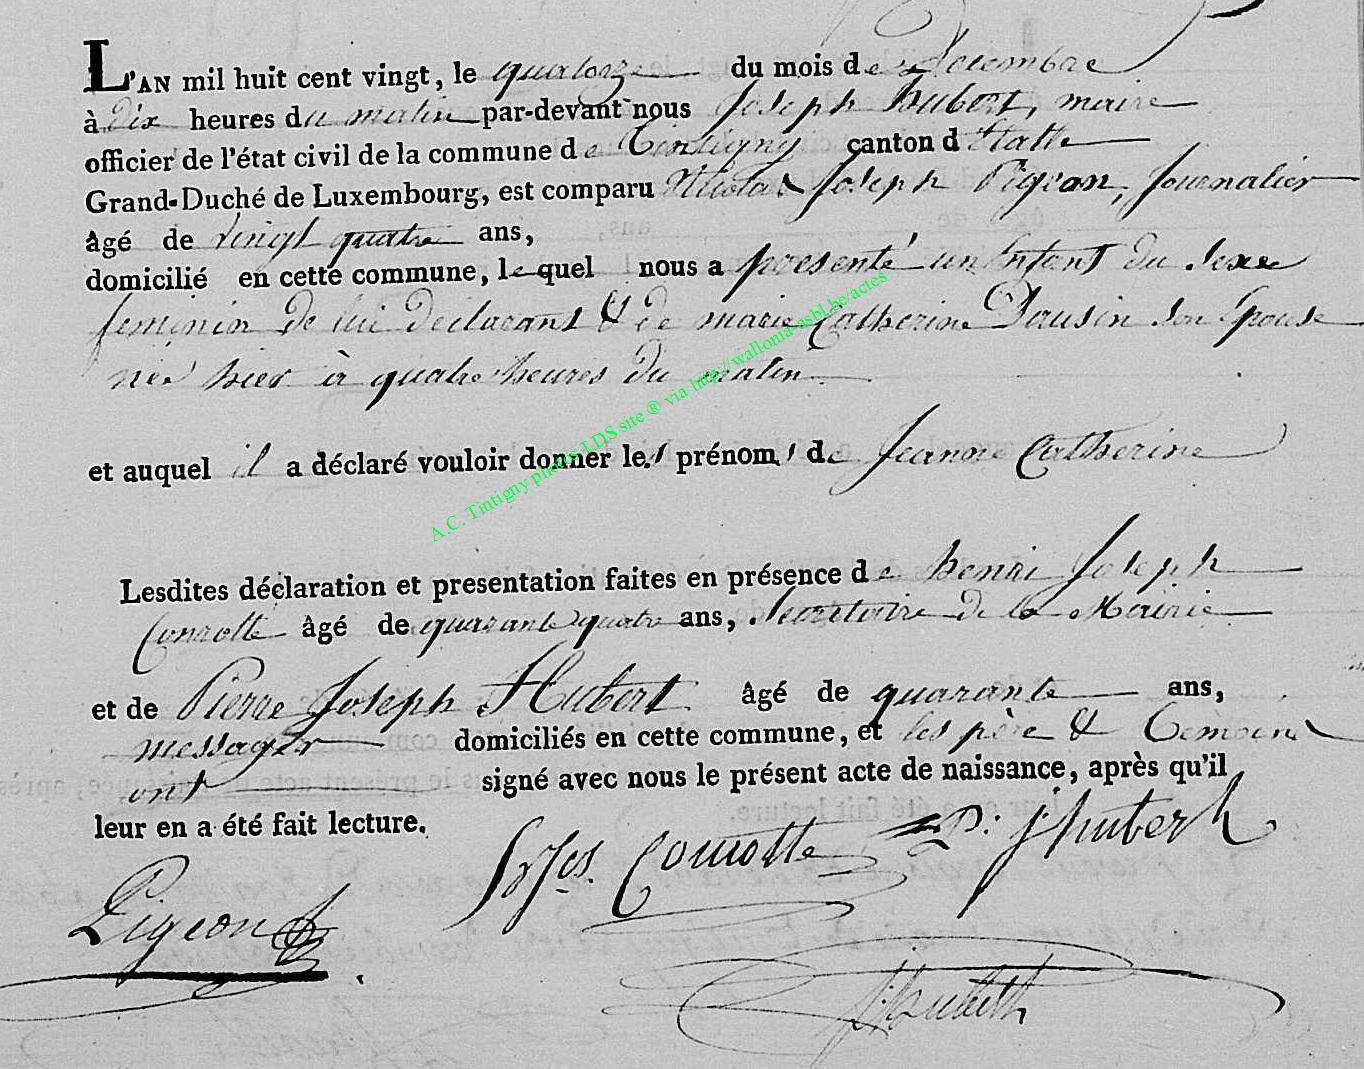 L'AN mil huit cent vingt, le quatorze du mois de Decembre
à dix heures du matin par-devant nous Joseph hubert, maire
officier de l'état civil de la commune de Tintigny canton d'Etalle
Grand-Duché de Luxembourg, est comparu Nicolas Joseph Pigeon, Journalier
âgé de vingt quatre ans,
domicilié en cette commune, lequel nous a presenté un Enfant du sexe
feminin de lui declarant & de marie Catherine Dausin son Epouse
née hier à quatre heures du matin
et auquel il a déclaré vouloir donner les prénoms de Jeanne Catherine
Lesdites déclaration et presentation faites en présence de henri Joseph
Conrotte âgé de quarante quatre ans, Secretaire de la Mairie
et de Pierre Joseph Hubert âgé de quarante ans,
messager domiciliés en cette commune, et les père & Temoins
ont signé avec nous le présent acte de naissance, après qu'il
leur en a été fait lecture.
Conrotte P: j: hubert
Pigeon
j: hubert
A.C. Tintigny photos LDS site ® via http://wallonia-asbl.be/actes